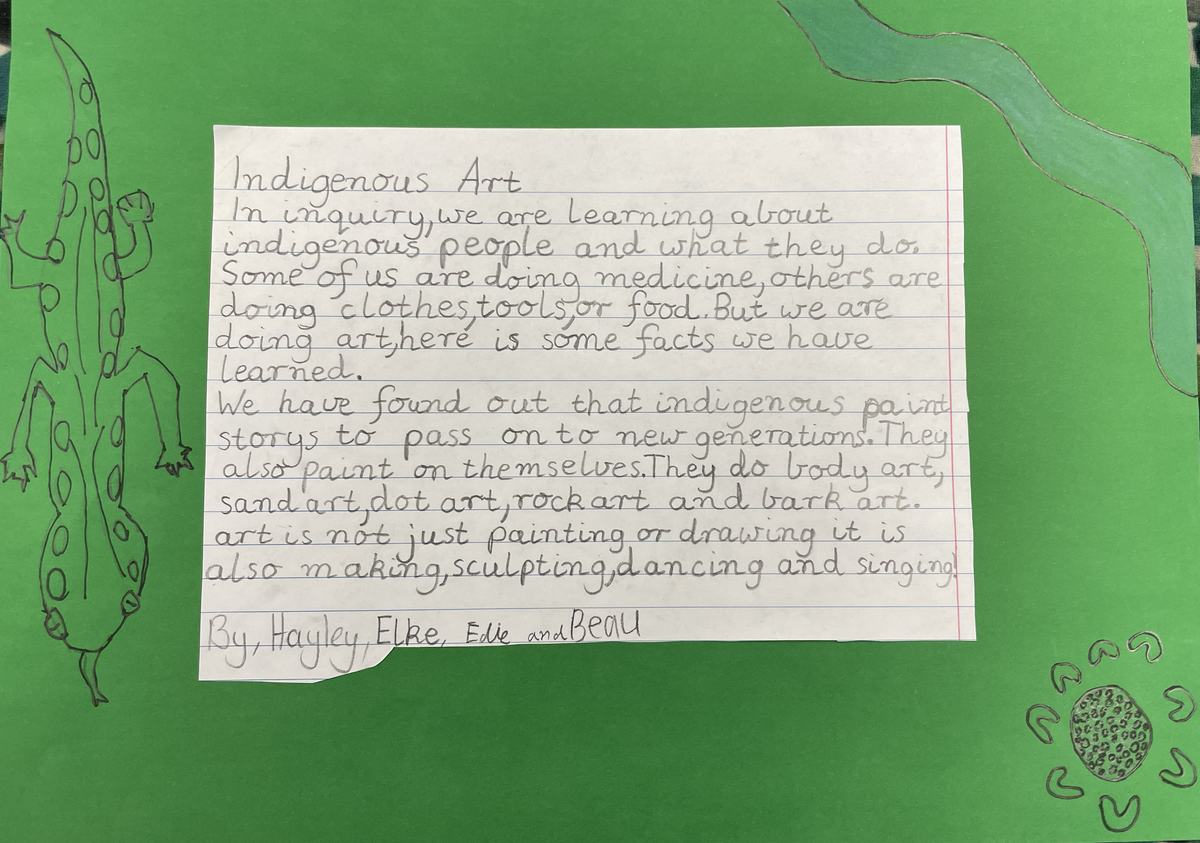 Indigenous Art
In inquiry, we are learning about
indigenous people and what they do.
Some of us are doing medicine, others are
doing clothes, tools, or food. But we are
doing art, here is some facts we have
learned.
We have found out that indigenous paint
storys to pass on to new generations. They
also paint on themselves. They do body art,
sand art, dot art, rock art and bark art.
art is not just painting or drawing it is
also making, sculpting, dancing and singing!
By, Hayley, Elke, Edie and Beau